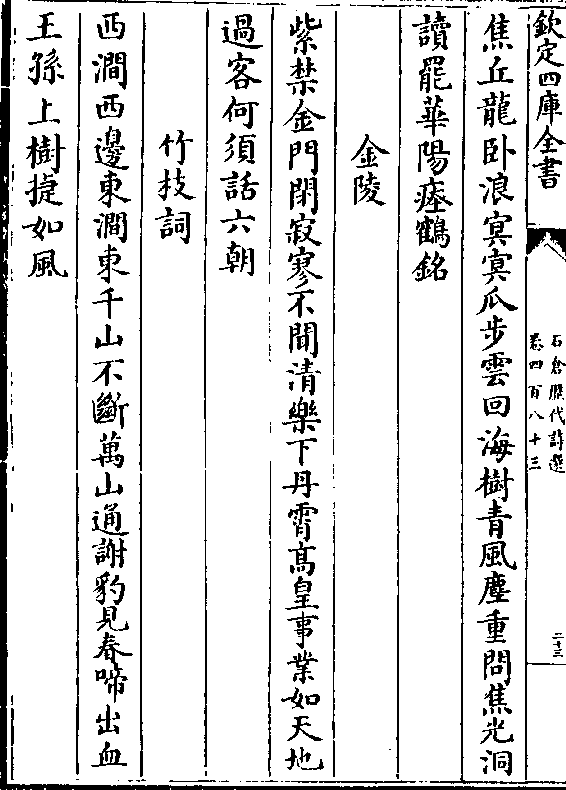 欽定四庫全書
石倉歷代詩選
卷四百八十三
二十三
焦丘龍卧浪冥冥瓜步雲回海樹青風塵重問焦光洞
讀罷華陽瘞鶴銘
金陵
紫禁金門閉寂寥不聞清樂下丹霄高皇事業如天地
過客何須話六朝
竹枝詞
西澗西邊東澗東千山不斷萬山通謝豹見春啼出血
王孫上樹捷如風